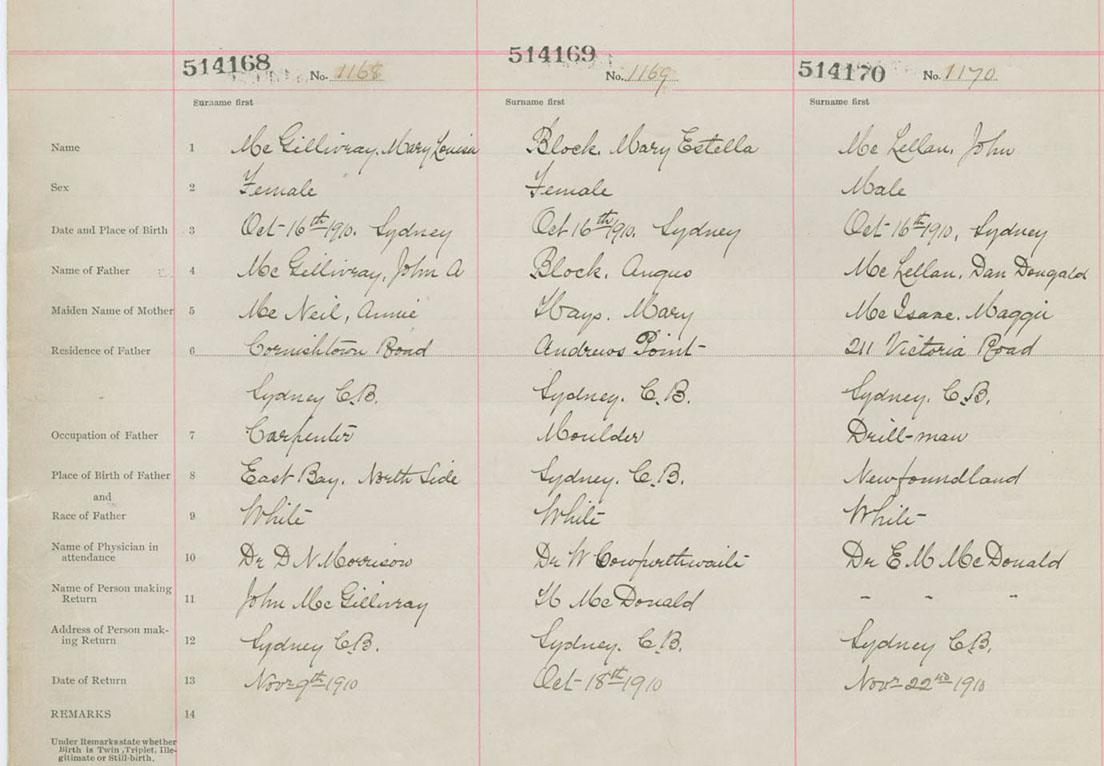 514168 No. 1168
514169 No. 1169
514170 No. 1170
Surname first Surname first Surname first
Name 1 McGillivray, Mary Louisa Block. Mary Estella McLellan. John
Sex 2 Female Female Male
Date and Place of Birth 3 Oct 16th 1910. Sydney Oct 16th 1910. Sydney Oct 16th 1910, Sydney
Name of Father 4 McGillivray, John A Block. Angus McLellan. Dan Dougald
Maiden Name of Mother 5 McNeil, Annie Hays. Mary McIsaac. Maggie
Residence of Father 6 Cornishtown Road Andrews Point 211 Victoria Road
Sydney C.B. Sydney. C.B. Sydney. C.B.
Occupation of Father 7 Carpenter Moulder Drill-man
Place of Birth of Father 8 East Bay. North Side Sydney. C.B. Newfoundland
and
Race of Father 9 White White White
Name of Physician in
attendance 10 Dr D N Morrison Dr W Cowperthwaite Dr E M McDonald
Name of Person making
Return 11 John McGillivray H McDonald " " "
Address of Person mak-
ing Return 12 Sydney C.B. Sydney. C.B. Sydney C.B.
Date of Return 13 Novr 9th 1910 Oct 18th 1910 Novr 22nd 1910
REMARKS 14
Under Remarks state whether
Birth is Twin, Triplet, Ille-
gitimate or Still-birth.